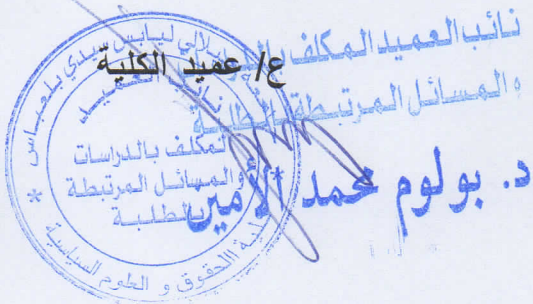 نائب العميد المكلف
ع/ عميد الكلية
و المسائل المرتبطة بالطلبة
د. بولوم محمد الأمين
جيلالي ليابس سيدي بلعباس
نائب العميد
المكلف بالدراسات
و المسائل المرتبطة
بالطلبة
كلية الحقوق و العلوم السياسية